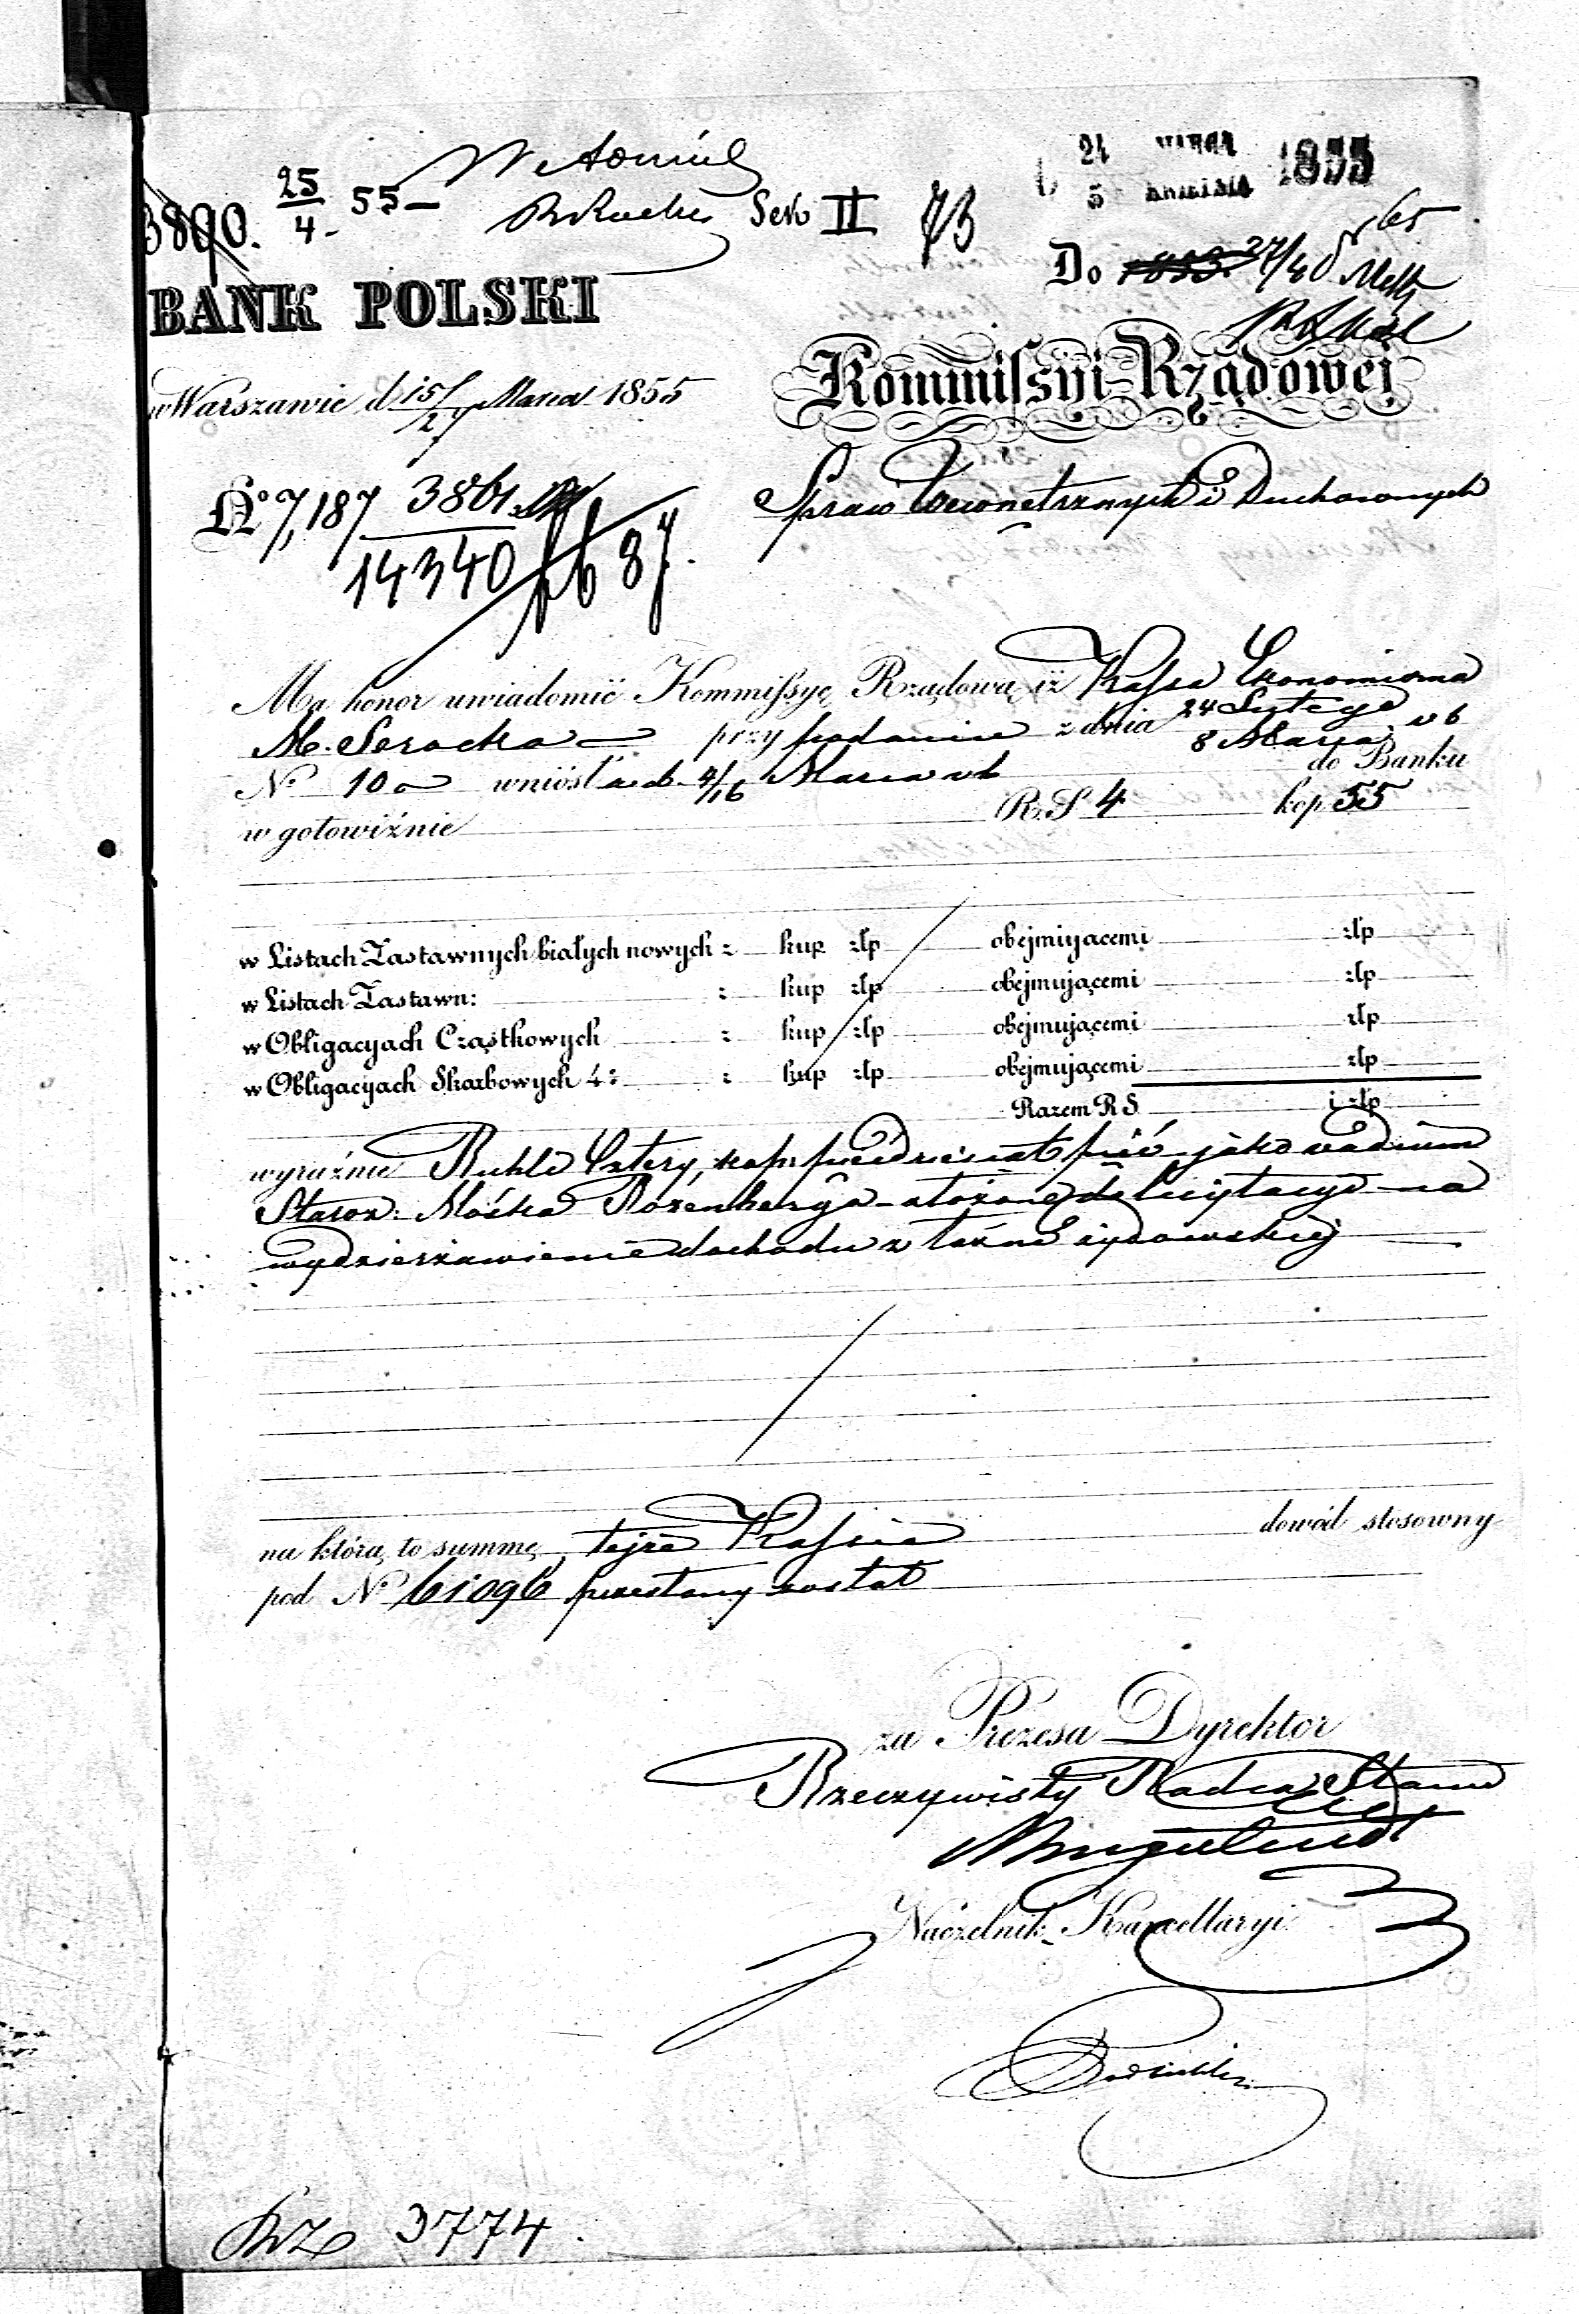 25/4 - 55 -
Sek II 73
24 MARCA
5 KWIETNIA 1855
3890.
Do 27/4 55
BANK POLSKI
Kommissyi Rządowej
w Warszawie d 15/27 Marca 1855
Spraw Wewnętrznych i Duchownych
No 7,187 3861
14340 87.
Ma honor uwiadomić Kommissyę Rządową, iż Kassa Ekonomiczna
M. Serocka przy podaniu z dnia 24 Lutego / 8 Marca rb
No 10 wniosła d. 4/16 Marca rb do Banku
w gotowiźnie R.S 4 kop 55
w Listach Zastawnych białych nowych : kup złp obejmującemi złp
w Listach Zastawn: : kup złp obejmującemi złp
w Obligacyach Cząstkowych : kup złp obejmującemi złp
w Obligacyach Skarbowych 4: : kup złp obejmującemi złp
Razem RS i złp
wyraźnie Ruble Cztery, kop: pięćdziesiąt pięć jako vadium
Staroz: Mośka Rozenberga złożone do licytacyi na
wydzierżawienie dochodu z łaźni żydowskiej
na którą to summę, tejże Kassie dowód stosowny
pod No 61096 przesłany został
za Prezesa Dyrektor
Rzeczywisty Radca Stanu
Naczelnik Kancellaryi
3774.